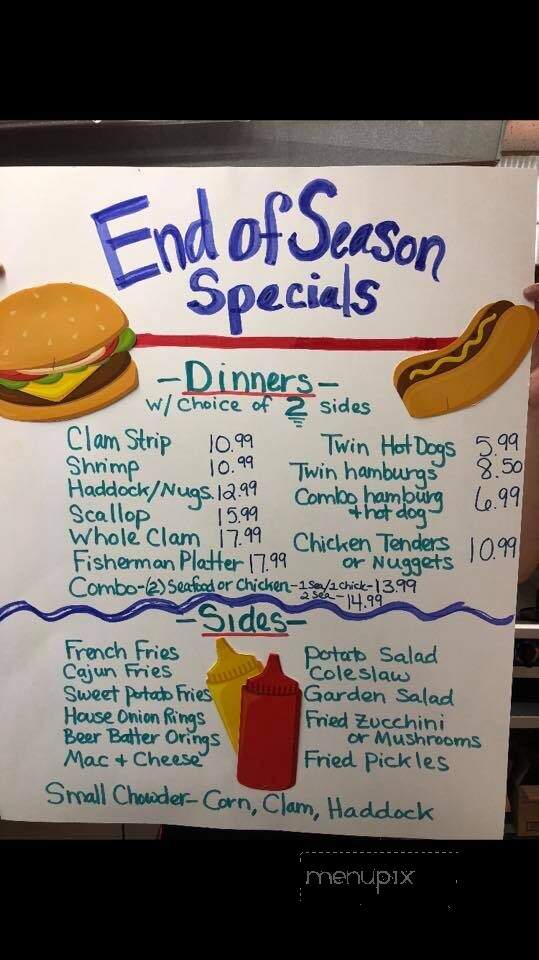 End of Season
Specials
- Dinners -
w/ choice of 2 sides
Clam Strip 10.99
Shrimp 10.99
Haddock/Nugs. 12.99
Scallop 15.99
Whole Clam 17.99
Fisherman Platter 17.99
Twin Hot Dogs 5.99
Twin hamburgs 8.50
Combo hamburg 6.99
+ hot dog
Chicken Tenders
or Nuggets 10.99
Combo-(2) Seafood or Chicken - 1 Sea/1 chick - 13.99
2 sea - 14.99
- Sides -
French Fries
Cajun Fries
Sweet Potato Fries
House Onion Rings
Beer Batter Orings
Mac + Cheese
Potato Salad
Coleslaw
Garden Salad
Fried Zucchini
or Mushrooms
Fried Pickles
Small Chowder - Corn, Clam, Haddock
menupix